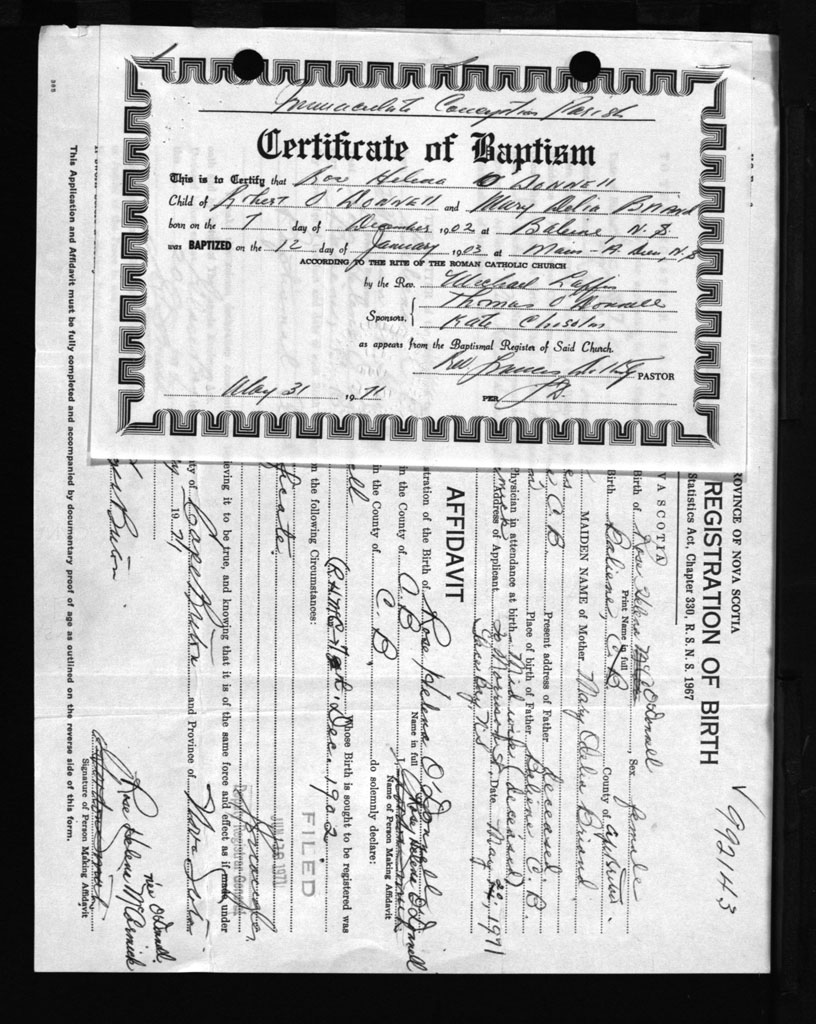 Immaculate Conception Parish
Certificate of Baptism
This is to Certify that Rose Helena O'DONNEll
Child of Robert O'DONNEll and Mary Delia Briand
born on the 7 day of December 1902 at Baleine, N.S
was BAPTIZED on the 12 day of January 1903 at Main-A-Dieu, N.S
ACCORDING TO THE RITE OF THE ROMAN CATHOLIC CHURCH
by the Rev. Michael Laffin
Sponsors, { Thomas O'Donnell
Kate Chisolm
as appears from the Baptismal Register of Said Church.
Rev Francis PASTOR
May 31 1971 PER
ROVINCE OF NOVA SCOTIA
REGISTRATION OF BIRTH
V 992143
Statistics Act, Chapter 330, R.S.N.S. 1967
VA SCOTIA
Birth of Rose Helena O'Donnell, Sex female
Print Name in full
Birth Baleine, C B County of Cape Breton
MAIDEN NAME of Mother Mary Delia Briand
es Present address of Father deceased
C. B Place of birth of Father Baleine C. B.
hysician in attendance at birth Midwife (deceased)
Address of Applicant Morrison St. Date May 20, 1971
Glace Bay, N.S
AFFIDAVIT
stration of the Birth of Rose Helena O'Donnell
Name in full
Rose Helena O'Donnell
Name of Person Making Affidavit
n the County of C. B
in the County of C. B do solemnly declare:
ell Whose Birth is sought to be registered was
Dec. 1902
n the following Circumstances:
FILED
JUN 1971
Deputy Registrar General
ieving it to be true, and knowing that it is of the same force and effect as if made under
ty of Cape Breton and Province of Nova Scotia
y 1971
Signature of Person Making Affidavit
Rose Helena McCormick
nee O'Donnell
This Application and Affidavit must be fully completed and accompanied by documentary proof of age as outlined on the reverse side of this form.